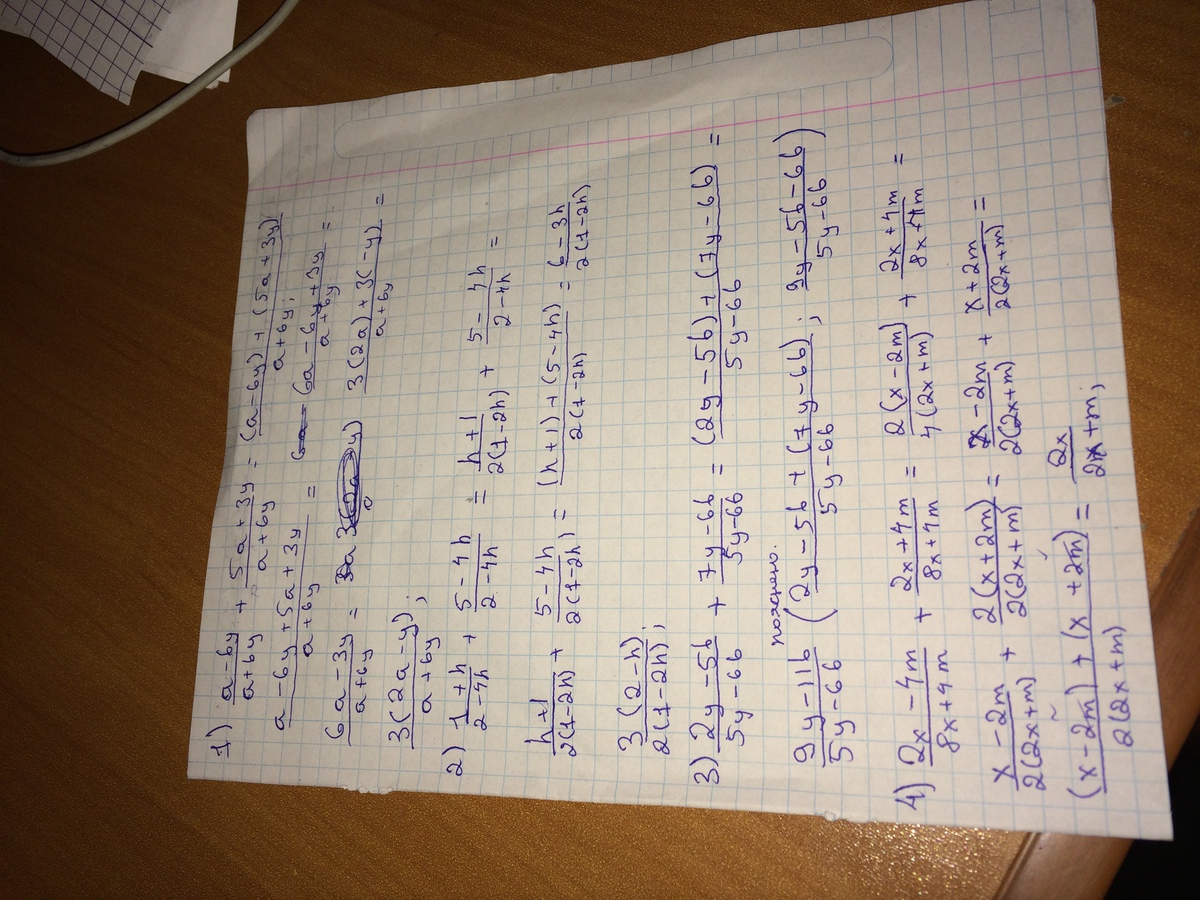 1) (a-6y)/(a+6y) + (5a+3y)/(a+6y) = ((a-6y)+(5a+3y))/(a+6y);
(a-6y+5a+3y)/(a+6y) = (6a-6y+3y)/(a+6y) =
(6a-3y)/(a+6y) = (3(2a)+3(-y))/(a+6y) =
(3(2a-y))/(a+6y);
2) (1+h)/(2-4h) + (5-4h)/(2-4h) = (h+1)/(2(1-2h)) + (5-4h)/(2-4h) =
(h+1)/(2(1-2h)) + (5-4h)/(2(1-2h)) = ((h+1)+(5-4h))/(2(1-2h)) = (6-3h)/(2(1-2h))
(3(2-h))/(2(1-2h));
3) (2y-5b)/(5y-6b) + (7y-6b)/(5y-6b) = ((2y-5b)+(7y-6b))/(5y-6b) =
(9y-11b)/(5y-6b) ((2y-5b+(7y-6b))/(5y-6b); (9y-5b-6b)/(5y-6b))
4) (2x-4m)/(8x+4m) + (2x+4m)/(8x+4m) = (2(x-2m))/(4(2x+m)) + (2x+4m)/(8x+4m) =
(x-2m)/(2(2x+m)) + (2(x+2m))/(2(2x+m)) = (x-2m)/(2(2x+m)) + (x+2m)/(2(2x+m)) =
((x-2m)+(x+2m))/(2(2x+m)) = (2x)/(2x+m);